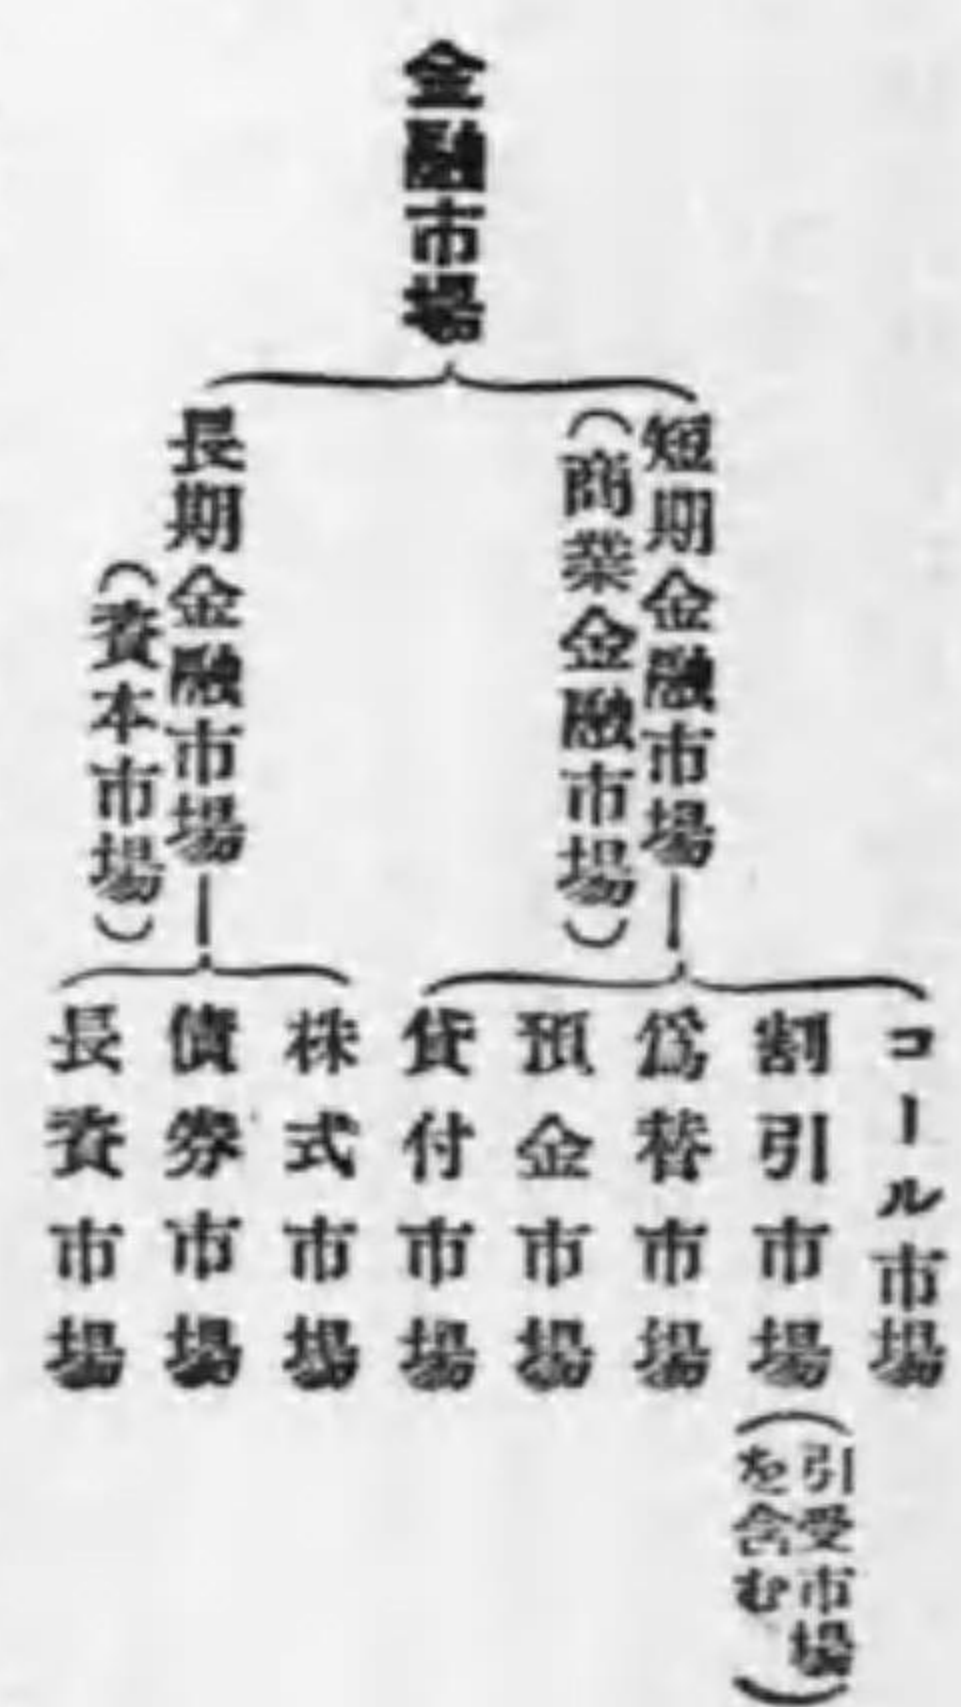 金融市場
短期金融市場
（商業金融市場）
コール市場
割引市場
（引受市場
を含む）
爲替市場
預金市場
貸付市場
長期金融市場
（資本市場）
株式市場
債券市場
長資市場